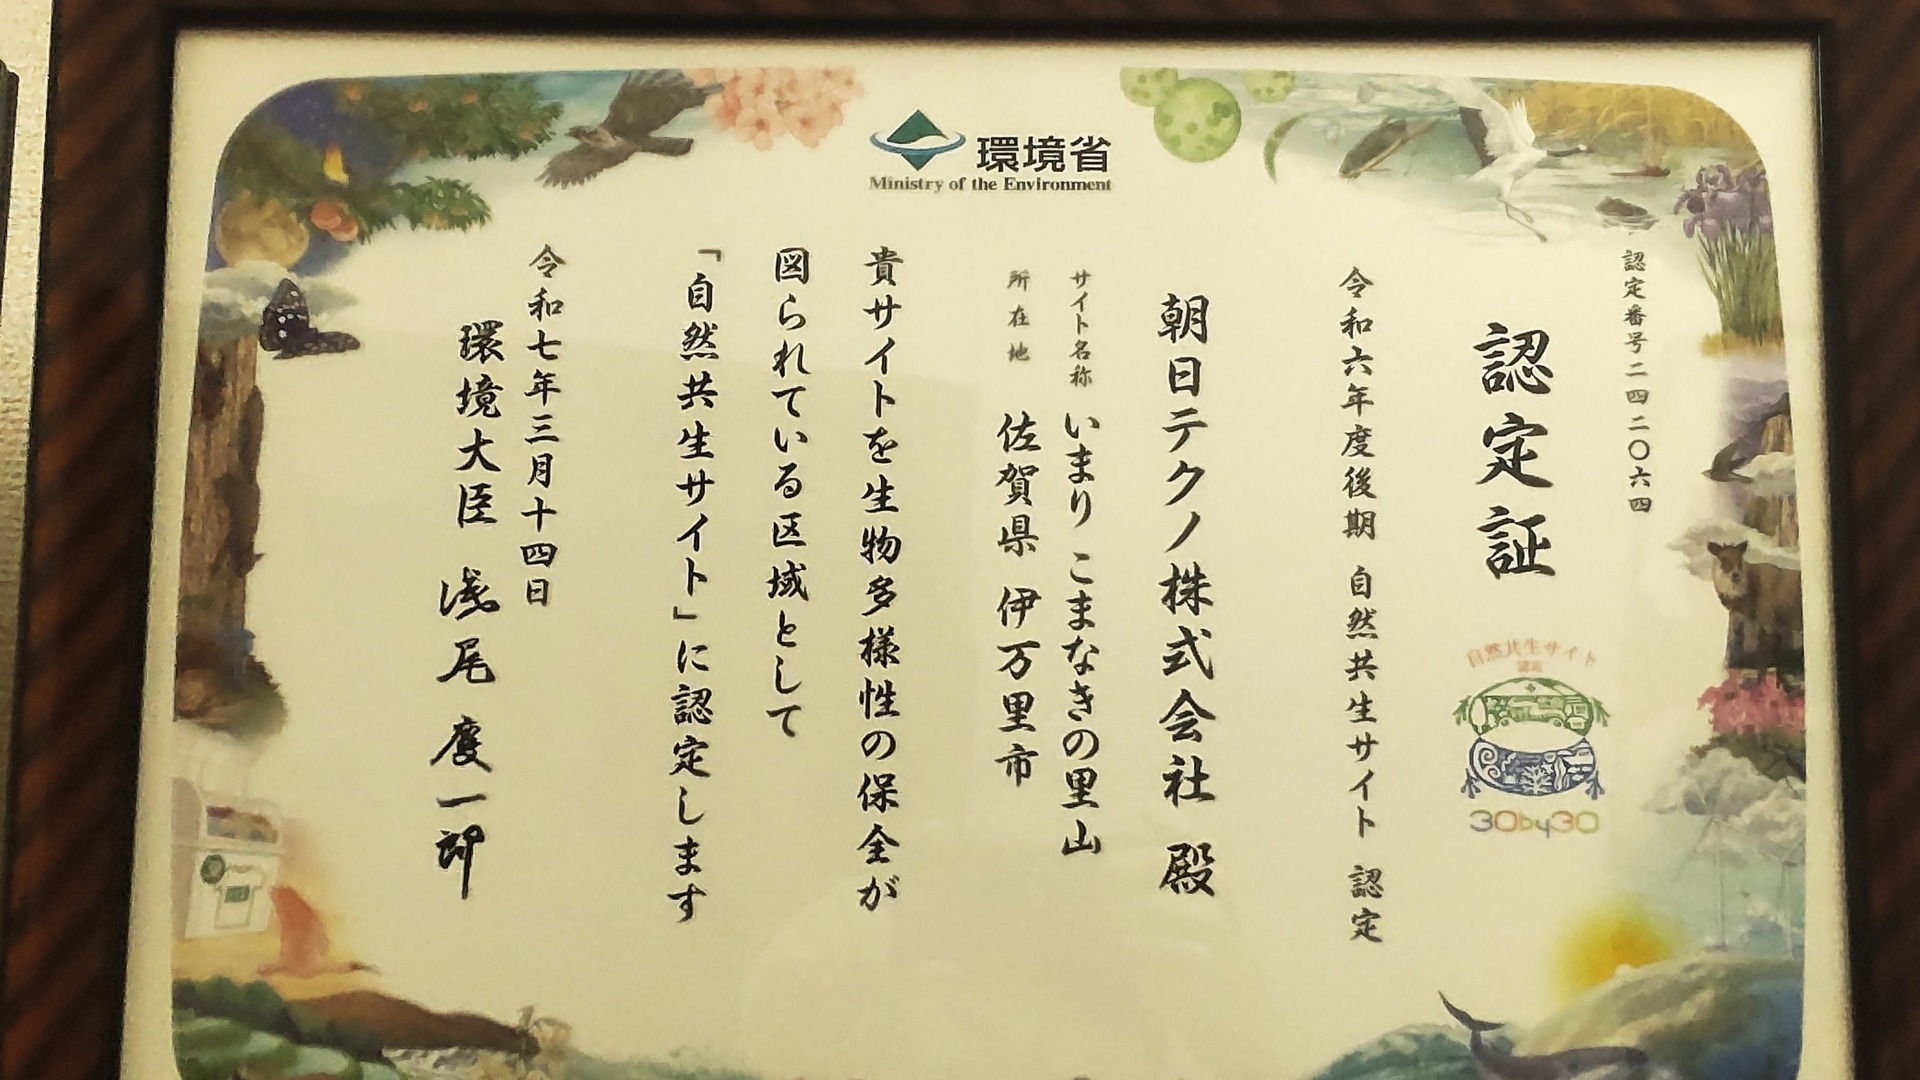 環境省
Ministry of the Environment
認定番号二四二〇六四
認定証
自然共生サイト
認定
30by30
令和六年度後期 自然共生サイト 認定
朝日テクノ株式会社 殿
サイト名称 いまり こまなきの里山
所在地 佐賀県 伊万里市
貴サイトを生物多様性の保全が
図られている区域として
「自然共生サイト」に認定します
令和七年三月十四日
環境大臣 浅尾慶一郎